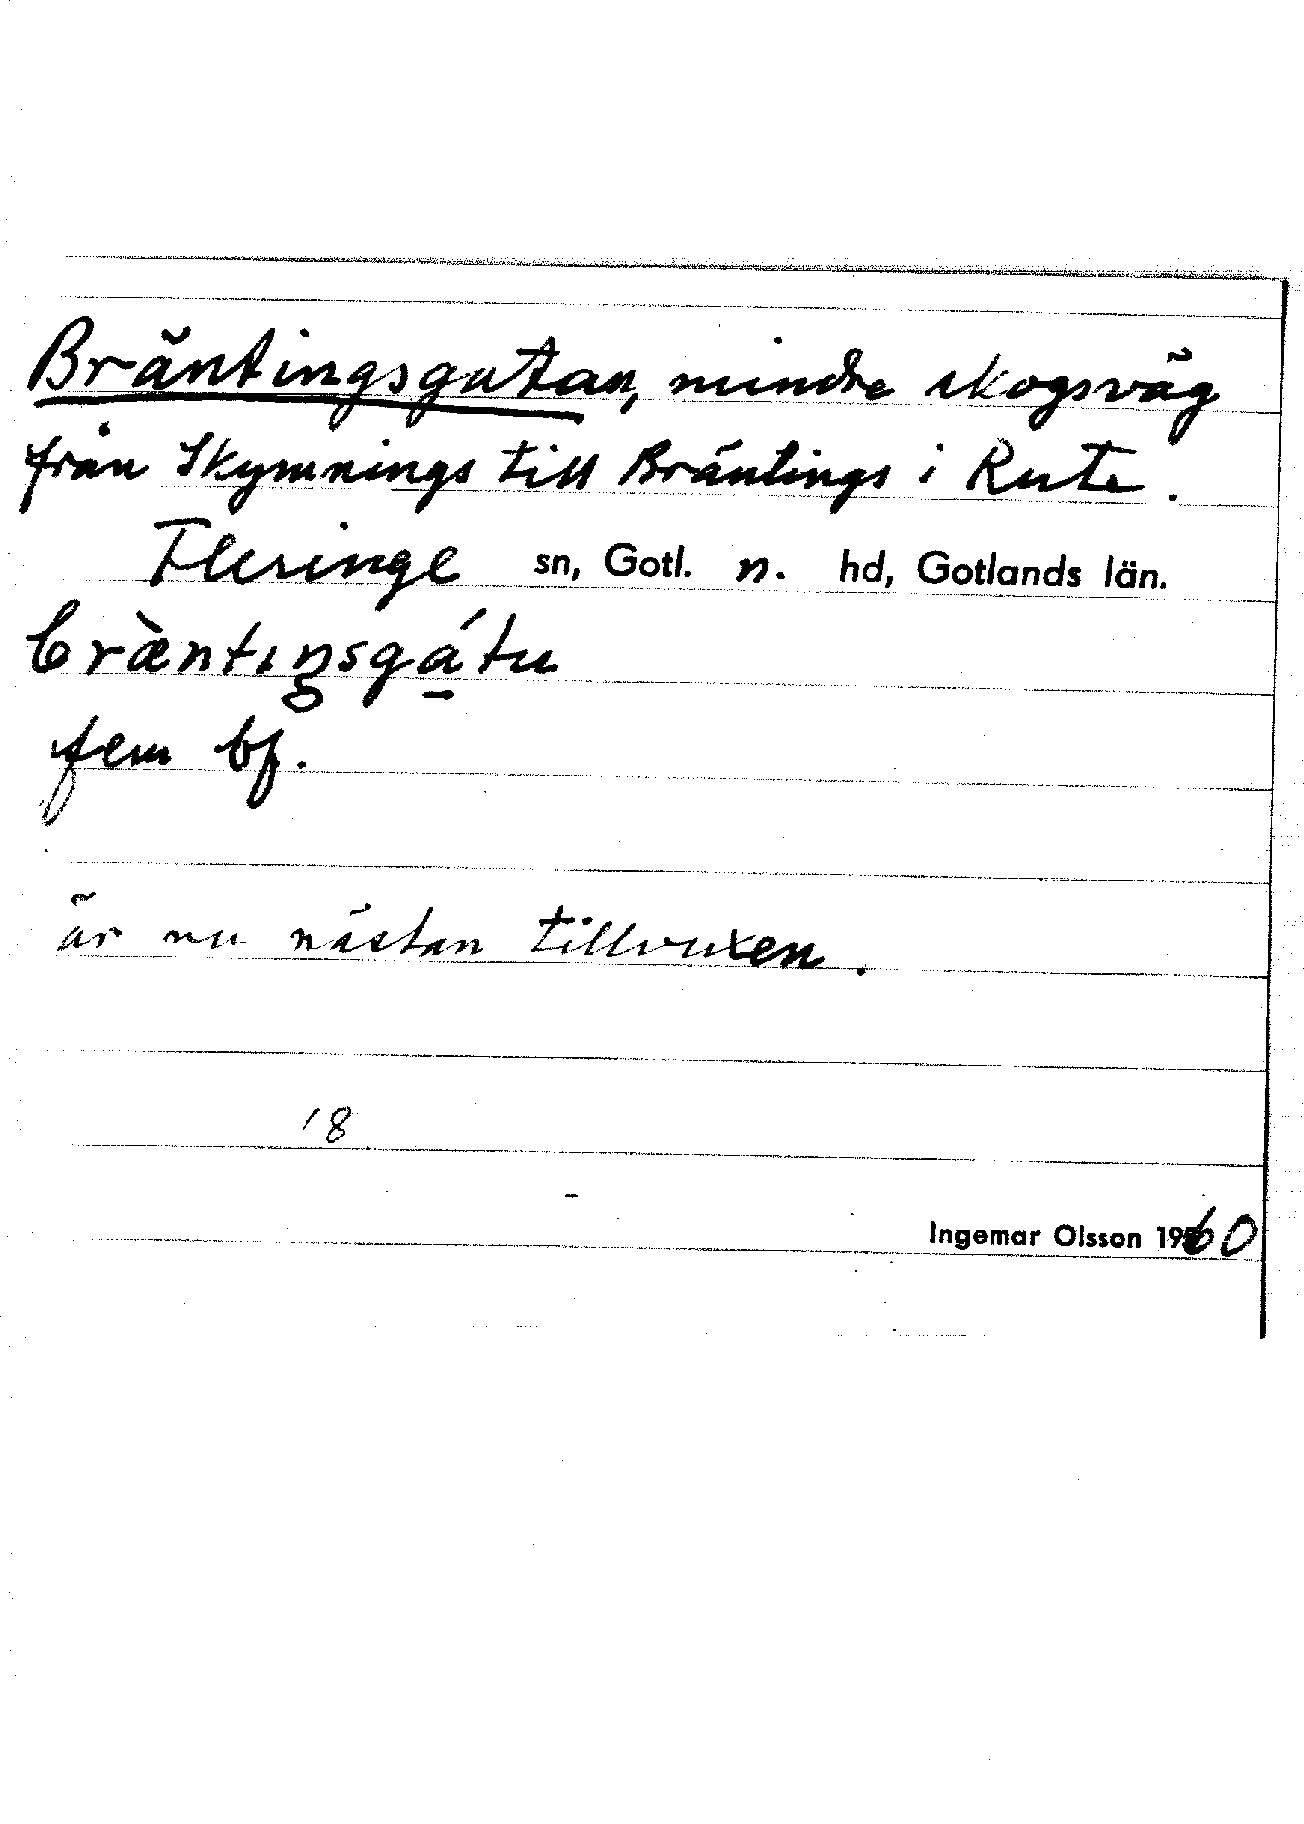 Bräntingsgatan, mindre skogsväg
från Skymnings till Bräntings i Rute.
Fleringe sn, Gotl. n. hd, Gotlands län.
bræ̀ntıŋsgá̱tu
fem bf.
är nu nästan tillvuxen.
18
Ingemar Olsson 1960